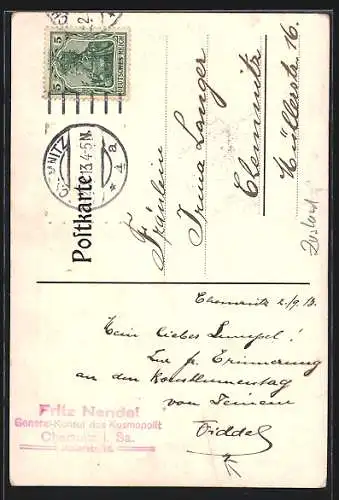 5
DEUTSCHES REICH
CHEMNITZ
13.4-5N.
* d a
Postkarte
Fräulein
Irma Langer
Chemnitz
Müllerstr. 16.
Chemnitz 2./9. 13.
Mein liebes Lumpel!
Zur fr. Erinnerung
an den Kornblumentag
von Deinem
Fritz Nendel
General-Konsul des Kosmopolit
Chemnitz i. Sa.